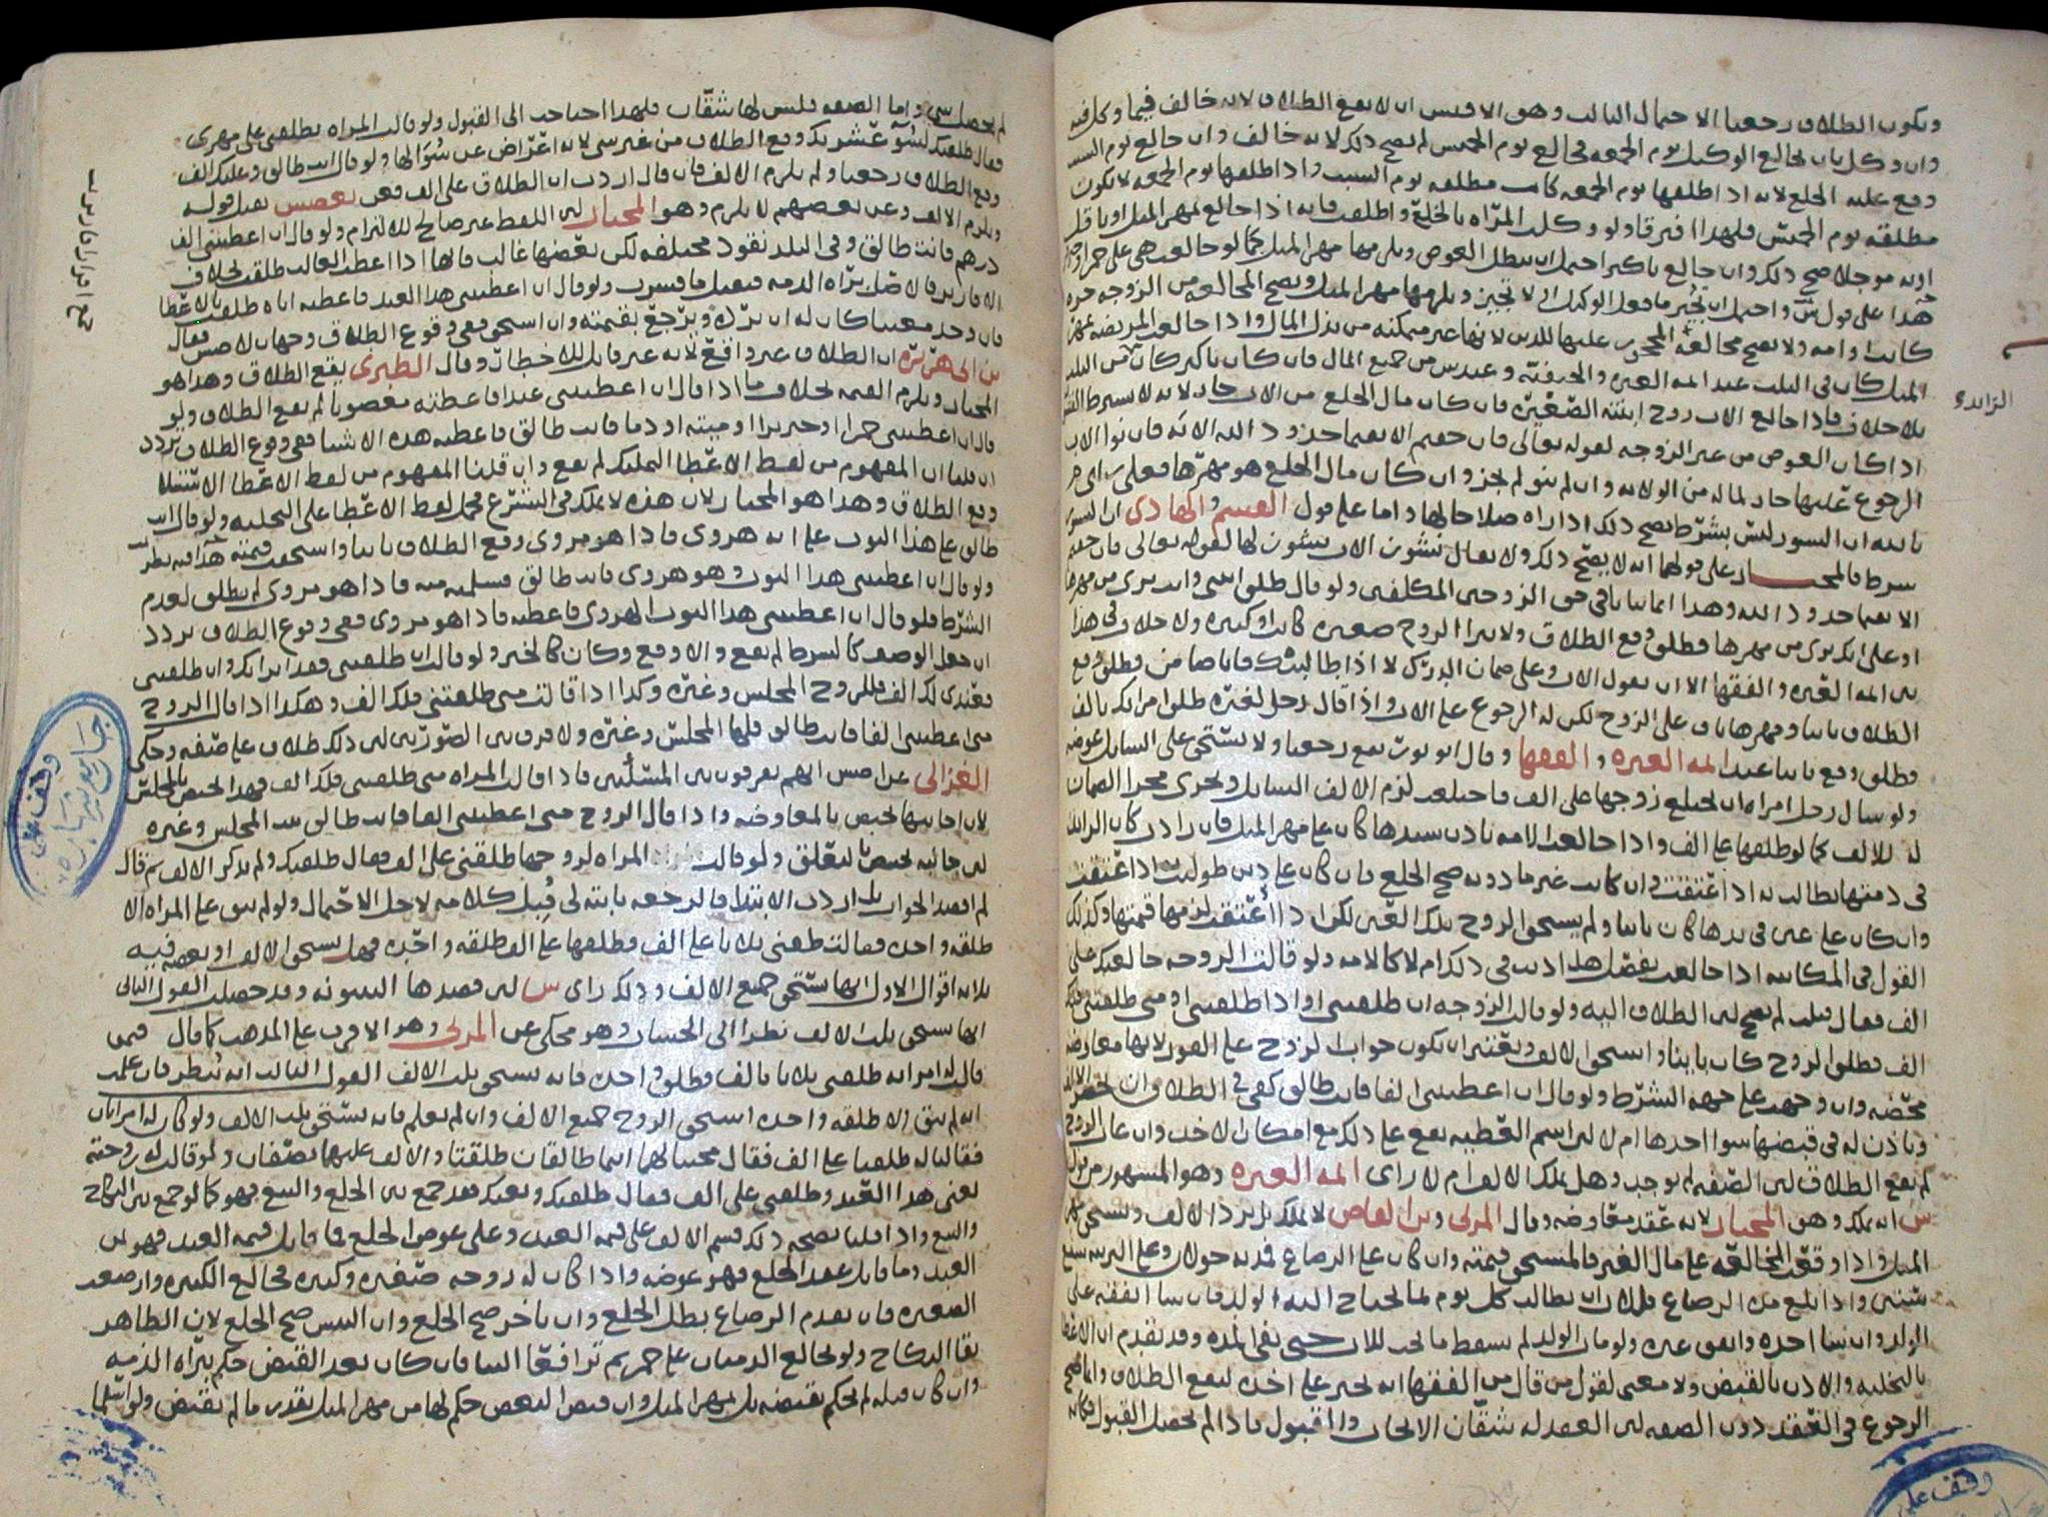 ويكون الطلاق رجعيا الاحتمال الثالث وهو الاقيس ان لا يقع الطلاق لانه خالف فيما وكل فيه
وان وكل بان يخالع الوكيل يوم الجمعه فخالع يوم الخميس لم يصح ذلك لانه خالف وان خالع يوم السبت
وقع عليه الخلع لانه اذا طلقها يوم الجمعه كانت مطلقه يوم السبت واذا طلقها يوم الجمعه لا تكون
مطلقه يوم الخميس فلهذا افترقا ولو وكلت المرأه بالخلع واطلقت فانه اذا خالع بمهر المثل او باقل
او به موجلا صح ذلك وان خالع باكثر احتمل ان يبطل العوض ويلزمها مهر المثل كما لو خالعت هي على خمر
هذا على قول ش واحتمل ان يخير ما فعل الوكيل لا تجيز ويلزمها مهر المثل ويصح المخالعه من الزوجه حره
كانت او امه ولا يصح مخالعة المحجور عليها للدين لانها غير متمكنه من بذل المال واذا خالعت المريضه بمهر
المثل كان في الثلث عند ائمه العتره والحنفيه وعند س من جميع المال فان كان باكثر كان من الثلث
بلا خلاف فاذا خالع الاب زوج ابنته الصغيره فان كان مال الخلع من الاب جاز لانه لا يشترط
اذا كان العوض من غير الزوجه لقوله تعالى فان خفتم الا يقيما حدود الله الايه فان نوا الاب
الرجوع عليها جاز لما له من الولايه وان لم ينو لم يجز وان كان مال الخلع هو مهرها فعلى راي
بالله ان النشوز ليس بشرط يصح ذلك اذا راه صلاحا لها واما على قول القسم والهادي ان النشوز
شرط فالمختار على قولهما انه لا يصح ذلك ولا يقال نشوز الاب نشوز لها لقوله تعالى فان خفتم
الا يقيما حدود الله وهذا انما يتاتى في حق الزوجين المكلفين ولو قال طلق ابنتي وانت بري من مهرها
او على انك بري من مهرها فطلق وقع الطلاق ولا يبرا الزوج صغيره كانت او كبيره ولا خلاف في هذا
بين ائمه العتره والفقها الا ان يقول الاب وعلي ضمان الدرك لا اذا طالبتك فانا ضامن فطلق وقع
الطلاق باينا ومهرها باق على الزوج لكن له الرجوع على الاب واذا قال رجل لغيره طلق امراتك بالف
فطلق وقع باينا عند ائمه العتره والفقها وقال ابو ثور يقع رجعيا ولا يستحق على السايل عوضه
ولو سال رجل امراه ان تختلع زوجها على الف فاختلعت لزم الالف السايل ويجري مجرا الضمان
له للالف كما لو طلقها على الف واذا خالعت الامه باذن سيدها كان على مهر المثل فان زادت كان الزايد
في ذمتها يطالب به اذا عتقت وان كانت غير ماذونه صح الخلع فان كان على دين طولبت به اذا عتقت
وان كان على عين في يدها كان باينا ولم يستحق الزوج تلك العين لكن اذا اعتقت لزمها قيمتها وكذلك
القول في المكاتبه اذا خالعت يفصل هل اذنت في ذلك ام لا كالامه ولو قالت الزوجه خالعتك على
الف فقال قبلت لم يصح لان الطلاق اليه ولو قالت الزوجه ان طلقتني او اذا طلقتني او متى طلقتني فلك
الف فطلق الزوج كان باينا واستحق الالف ويعتبر ان يكون جواب الزوج على الفور لانها معاوضه
محضه وان وجهت على جهة الشرط ولو قال ان اعطيتني الفا فانت طالق كفى في الطلاق ان تحضر الالف
وتاذن له في قبضها سوا اخذها ام لا لان اسم العطيه يقع على ذلك مع امكان الاخذ وان غاب الزوج
لم يقع الطلاق لان الصفه لم توجد وهل يملك الالف ام لا راي ائمه العتره وهو المشهور من قول
ش انه يملك وهو المختار لانه عقد معاوضه وقال المزني وابن القاص لا يملك بل يرد الالف ويستحق مهر
المثل واذا وقعت المخالعه على مال الغير فالمستحق قيمته وان كان على الرضاع فمدته حولان وعلى التربيه سبع
سنين واذا بلغ مدة الرضاع فللاب ان يطالب كل يوم بما يحتاج اليه الولد فان شا انفقه على
الولد وان شا اخذه وانفق غيره ولو مات الولد لم يسقط ما يجب للاب حتى تفي المده وقد تقدم ان الاعطا
بالتخليه والاذن بالقبض ولا معنى لقول من قال من الفقها انه يجبر على اخذه ليقع الطلاق وانما صح
الرجوع في العقد دون الصفه لان العقد له شقان الايجاب والقبول فاذا لم يحصل القبول فكانه
الزايده
لم يحصل شي واما الصفه فليس لها شقان فلهذا احتاجت الى القبول ولو قالت المراه تطلقني على مهري
فقال طلقتك لسوء عشرتك وقع الطلاق من غير شي لانه اعراض عن سؤالها ولو قال انت طالق وعليك الف
وقع الطلاق رجعيا ولم يلزم الالف فان قال اردت ان الطلاق على الف فعن بعضهم يقبل قوله
ويلزم الالف وعن بعضهم لا يلزم وهو المختار لان اللفظ غير صالح للالتزام ولو قال ان اعطيتني الف
درهم فانت طالق وفي البلد نقود مختلفه لكن بعضها غالب فانها اذا اعطت الغالب طلقت بخلاف
الاقارير فالاصل براه الذمه فيقبل ما فسرت ولو قال ان اعطيتني هذا العبد فاعطته اياه طلقت بالاعطا
فان وجد معيبا كان له ان يرده ويرجع بقيمته وان استحق ففي وقوع الطلاق وجهان لاصش فقال
بن ابي هريره ان الطلاق غير واقع لانه غير قابل للاخطار وقال الطبري يقع الطلاق وهذا هو
المختار ويلزم القيمه بخلاف ما اذا قال ان اعطيتني عبدا فاعطته مغصوبا لم يقع الطلاق ولو
قال ان اعطيتني خمرا او خنزيرا او ميته او دما فانت طالق فاعطته هذه الاشيا ففي وقوع الطلاق تردد
ان قلنا ان المفهوم من لفظ الاعطا التمليك لم يقع وان قلنا المفهوم من لفظ الاعطا
وقع الطلاق وهذا هو المختار لان هذه لا تملك في الشرع فحمل لفظ الاعطا على التخليه ولو قال انت
طالق على هذا الثوب على انه هروي فاذا هو مروي وقع الطلاق باينا واستحقت قيمته هذا فيه نظر
ولو قال ان اعطيتني هذا الثوب وهو هروي فانت طالق فسلمته منه فاذا هو مروي لم تطلق لعدم
الشرط فلو قال ان اعطيتني هذا الثوب الهروي فاعطته فاذا هو مروي ففي وقوع الطلاق تردد
ان جعل الوصف كالشرط لم يقع والا وقع وكان كالخبر ولو قالت ان طلقتني فقد ابراتك وان طلقتني
فعندي لك الف فللزوج المجلس وغيره وكذا اذا قالت متى طلقتني فلك الف وهكذا اذا قال الزوج
متى اعطيتني الفا فانت طالق فلها المجلس وغيره ولا فرق بين الصورتين لان ذلك طلاق على صفه وحكى
الغزالي عن اصش انهم يفرقون بين المسئلتين فاذا قالت المراه متى طلقتني فلك الف فهذا يختص بالمجلس
لان جانبها يختص بالمعاوضه واذا قال الزوج متى اعطيتني الفا فانت طالق بعد المجلس وغيره
لان جانبه يختص بالتعليق ولو قالت المراه لزوجها طلقني على الف فقال طلقتك ولم يذكر الالف ثم قال
لم اقصد الجواب بل اردت الابتدا فالرجعه ثابته لي قبل كلامه لاجل الاحتمال ولو لم يبق على المراه الا
طلقه واحده فقالت طلقني ثلاثا على الف فطلقها على الف طلقه واحده فهل يستحق الالف او بعضه فيه
ثلاثه اقوال الاول انها يستحق جميع الالف وذلك راي ش لان قصدها البينونه وقد حصلت القول الثاني
انما يستحق ثلث الالف نظرا الى الحساب وهو محكي عن المزني وهو الاقرب على المذهب كما قال فيمن
قالت له امراته طلقني ثلاثا بالف فطلق واحده فانه يستحق ثلث الالف القول الثالث انه ينظر فان علمت
انه لم يبق الا طلقه واحده استحق الزوج جميع الالف وان لم تعلم فانه يستحق ثلث الالف ولو كان له امراتان
فقالتا له طلقنا على الف فقال مجيبا لهما انتما طالقان طلقتا والالف عليهما نصفان ولو قالت له زوجته
بعني هذا العبد وطلقني على الف فقال طلقتك وبعتك فقد جمع بين الخلع والبيع فهو كما لو جمع بين النكاح
والبيع واذا قلنا بصحة ذلك قسم الالف على قيمه العبد وعلى عوض الخلع فما قابل قيمه العبد فهو ثمن
العبد وما قابل عقد الخلع فهو عوضه واذا كان له زوجه صغيره وكبيره فخالع الكبيره وارضعت
الصغيره فان تقدم الرضاع بطل الخلع وان تاخر صح الخلع وان التبس صح الخلع لان الظاهر
بقا النكاح ولو تخالع الذميان على خمر ثم ترافعا الينا فان كان بعد القبض حكم ببراه الذمه
وان كان قبله لم يحكم بقبضه بل بمهر المثل وان قبض البعض حكم لها من مهر المثل بقدر ما لم يقبض ولو اسلما
وقف على
وقف على